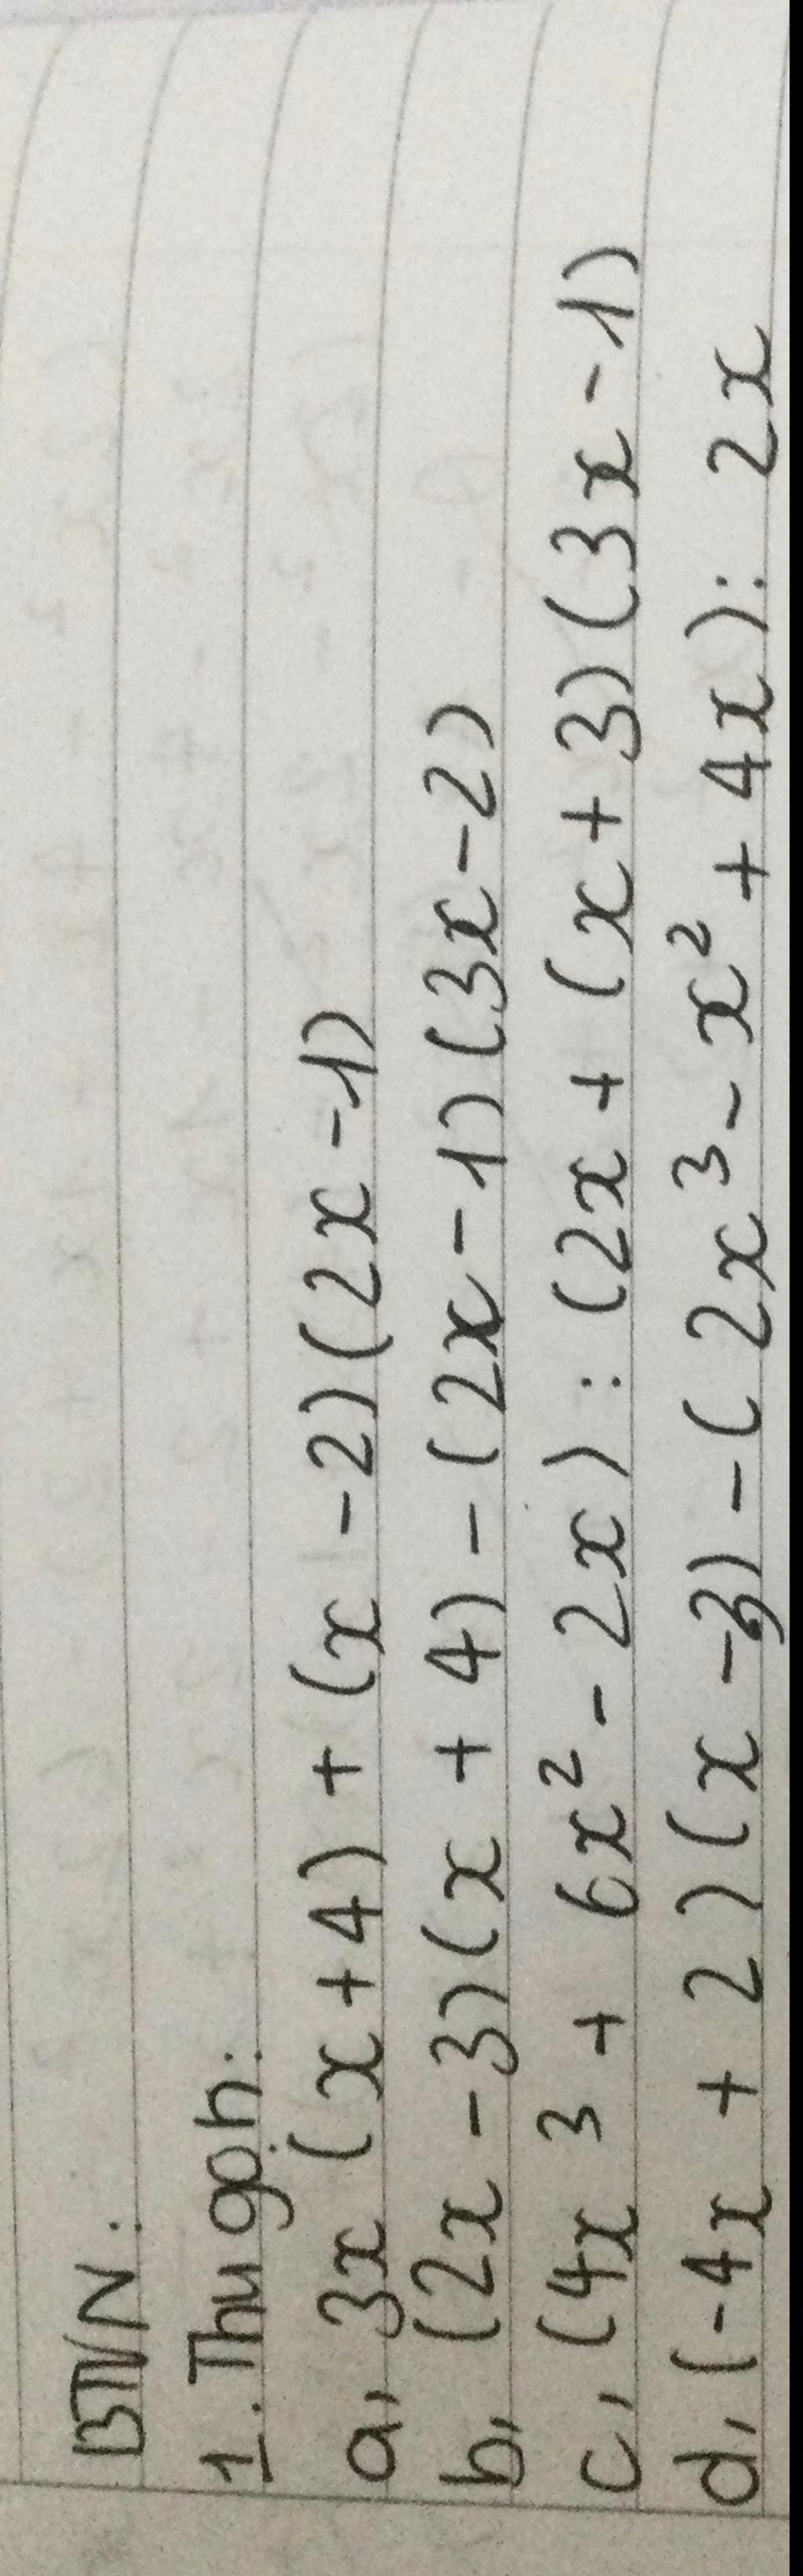 BTVN:
1. Thu gọn:
a, 3x (x + 4) + (x - 2)(2x - 1)
b, (2x - 3)(x + 4) - (2x - 1)(3x - 2)
c, (4x³ + 6x² - 2x) : (2x + (x + 3)(3x - 1)
d, (-4x + 2)(x - 3) - (2x³ - x² + 4x) : 2x